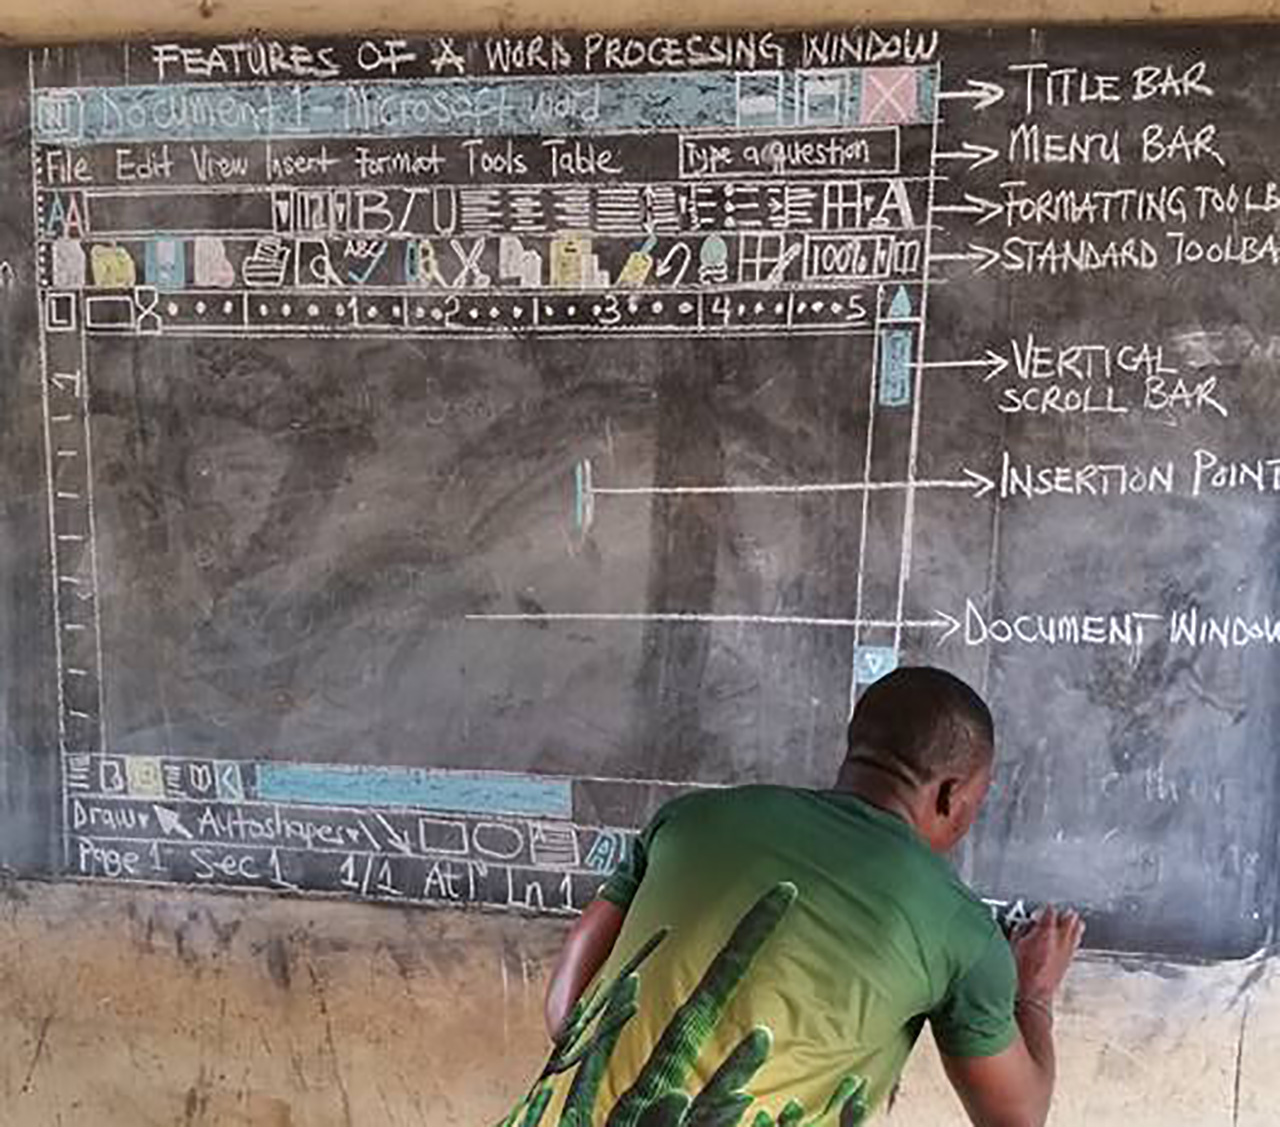 FEATURES OF A WORD PROCESSING WINDOW
Document 1 - Microsoft word
TITLE BAR
File Edit View Insert Format Tools Table Type a question
MENU BAR
AA B I U A
FORMATTING TOOLB
ABC 100%
STANDARD TOOLBA
L 1 2 3 4 5
1
VERTICAL
SCROLL BAR
INSERTION POINT
DOCUMENT WINDOW
Draw Autoshapes A
Page 1 Sec 1 1/1 At 1" Ln 1
TA